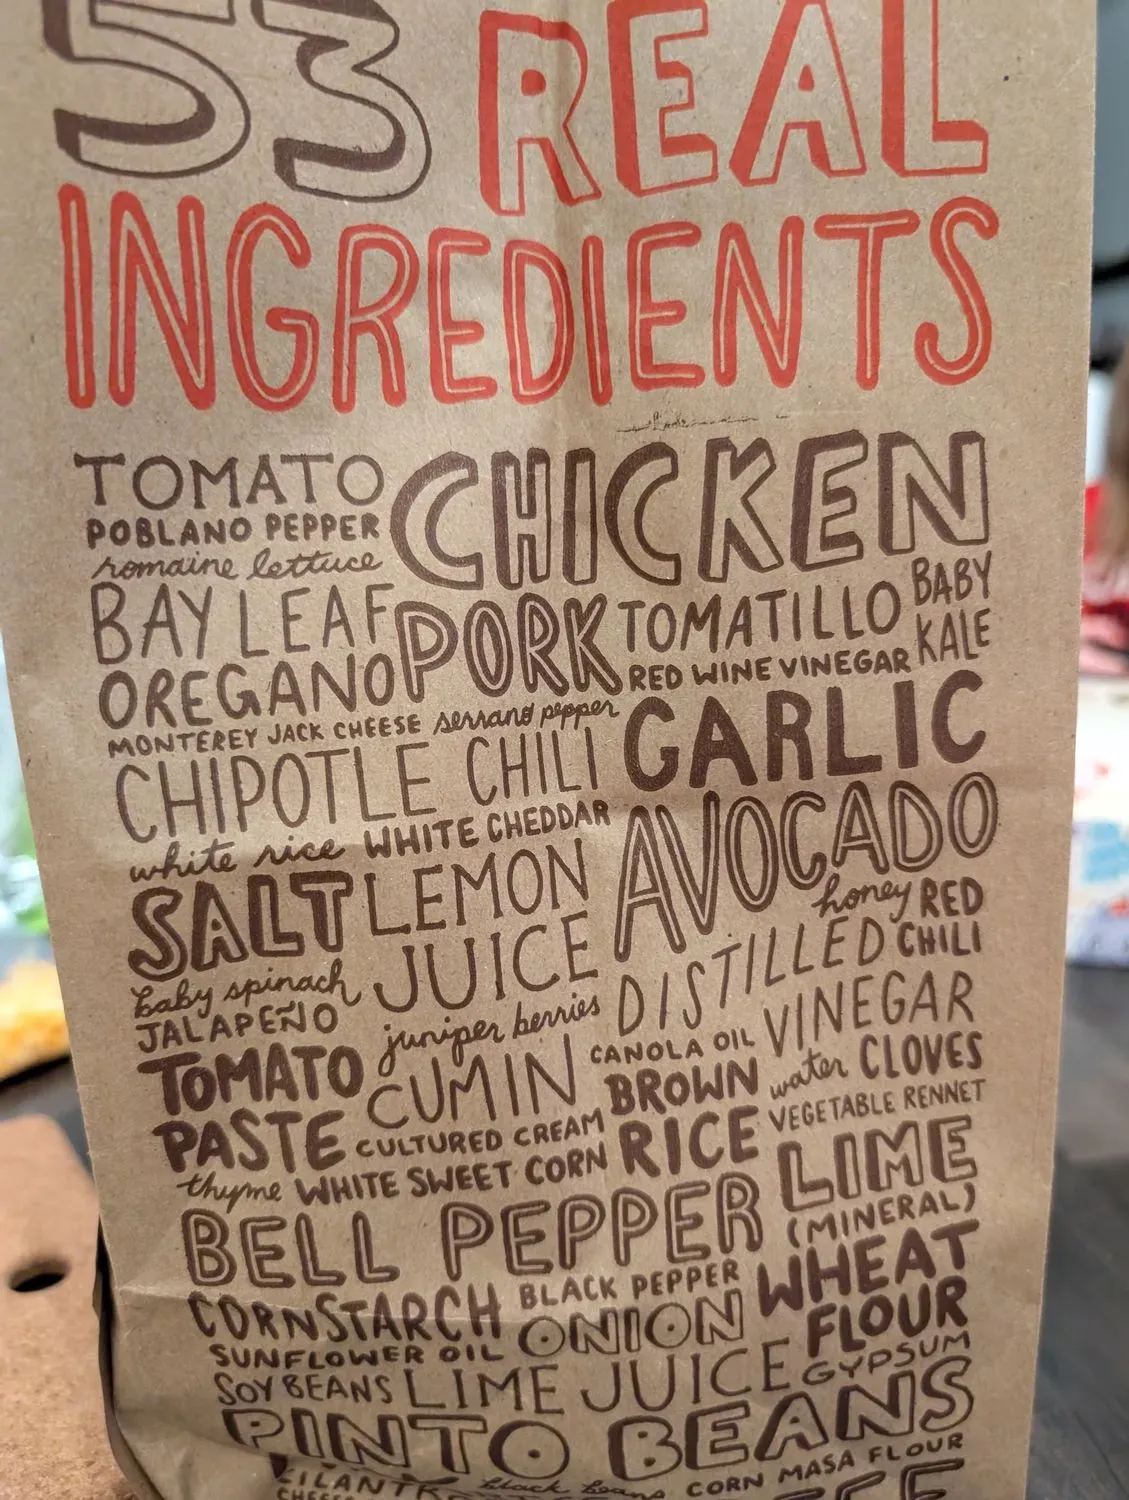 53 REAL
INGREDIENTS
TOMATO
POBLANO PEPPER
romaine lettuce
CHICKEN
BAY LEAF
OREGANO
PORK
TOMATILLO
RED WINE VINEGAR
BABY
KALE
MONTEREY JACK CHEESE
serrano pepper
CHIPOTLE CHILI
GARLIC
white rice
WHITE CHEDDAR
AVOCADO
SALT
LEMON
JUICE
honey
RED
CHILI
baby spinach
JALAPEÑO
juniper berries
DISTILLED
VINEGAR
TOMATO
PASTE
CUMIN
CANOLA OIL
BROWN
RICE
water
CLOVES
VEGETABLE RENNET
CULTURED CREAM
thyme
WHITE SWEET CORN
LIME
(MINERAL)
BELL PEPPER
CORNSTARCH
BLACK PEPPER
WHEAT
FLOUR
SUNFLOWER OIL
ONION
SOYBEANS
LIME JUICE
GYPSUM
PINTO BEANS
black beans
CORN MASA FLOUR